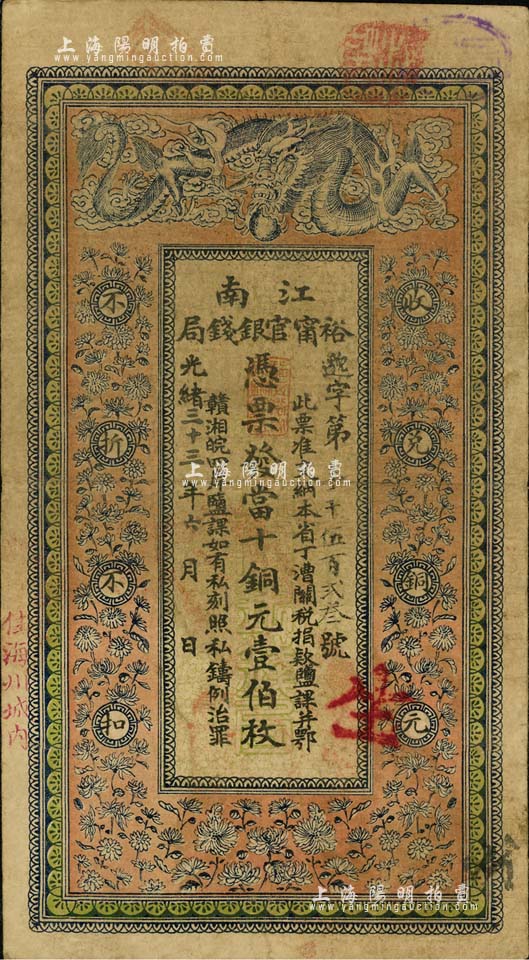 上海陽明拍賣
www.yangmingauction.com
江南
裕甯官銀錢局
遊字第 千伍百弍叁號
此票准 納本省丁漕關稅捐款鹽課并鄂
憑票發當十銅元壹佰枚
贛湘皖 鹽課如有私刻照私鑄例治罪
光緒三十三年六月 日
收兌銅元
不折不扣
住海州城內
上海陽明拍賣
www.yangmingauction.com
上海陽明拍賣
www.yangmingauction.com